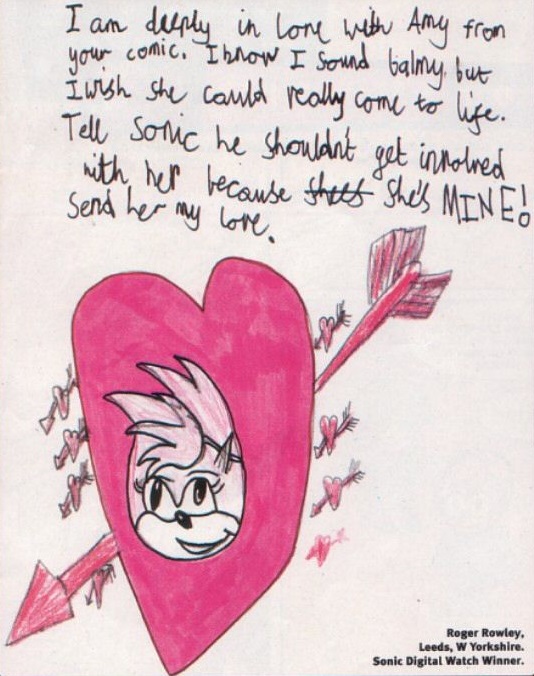 I am deeply in Love with Amy from
your comic. I know I sound balmy, but
I wish she could really come to life.
Tell Sonic he shouldn't get involved
with her because shees She's MINE!
Send her my love.
Roger Rowley,
Leeds, W Yorkshire.
Sonic Digital Watch Winner.